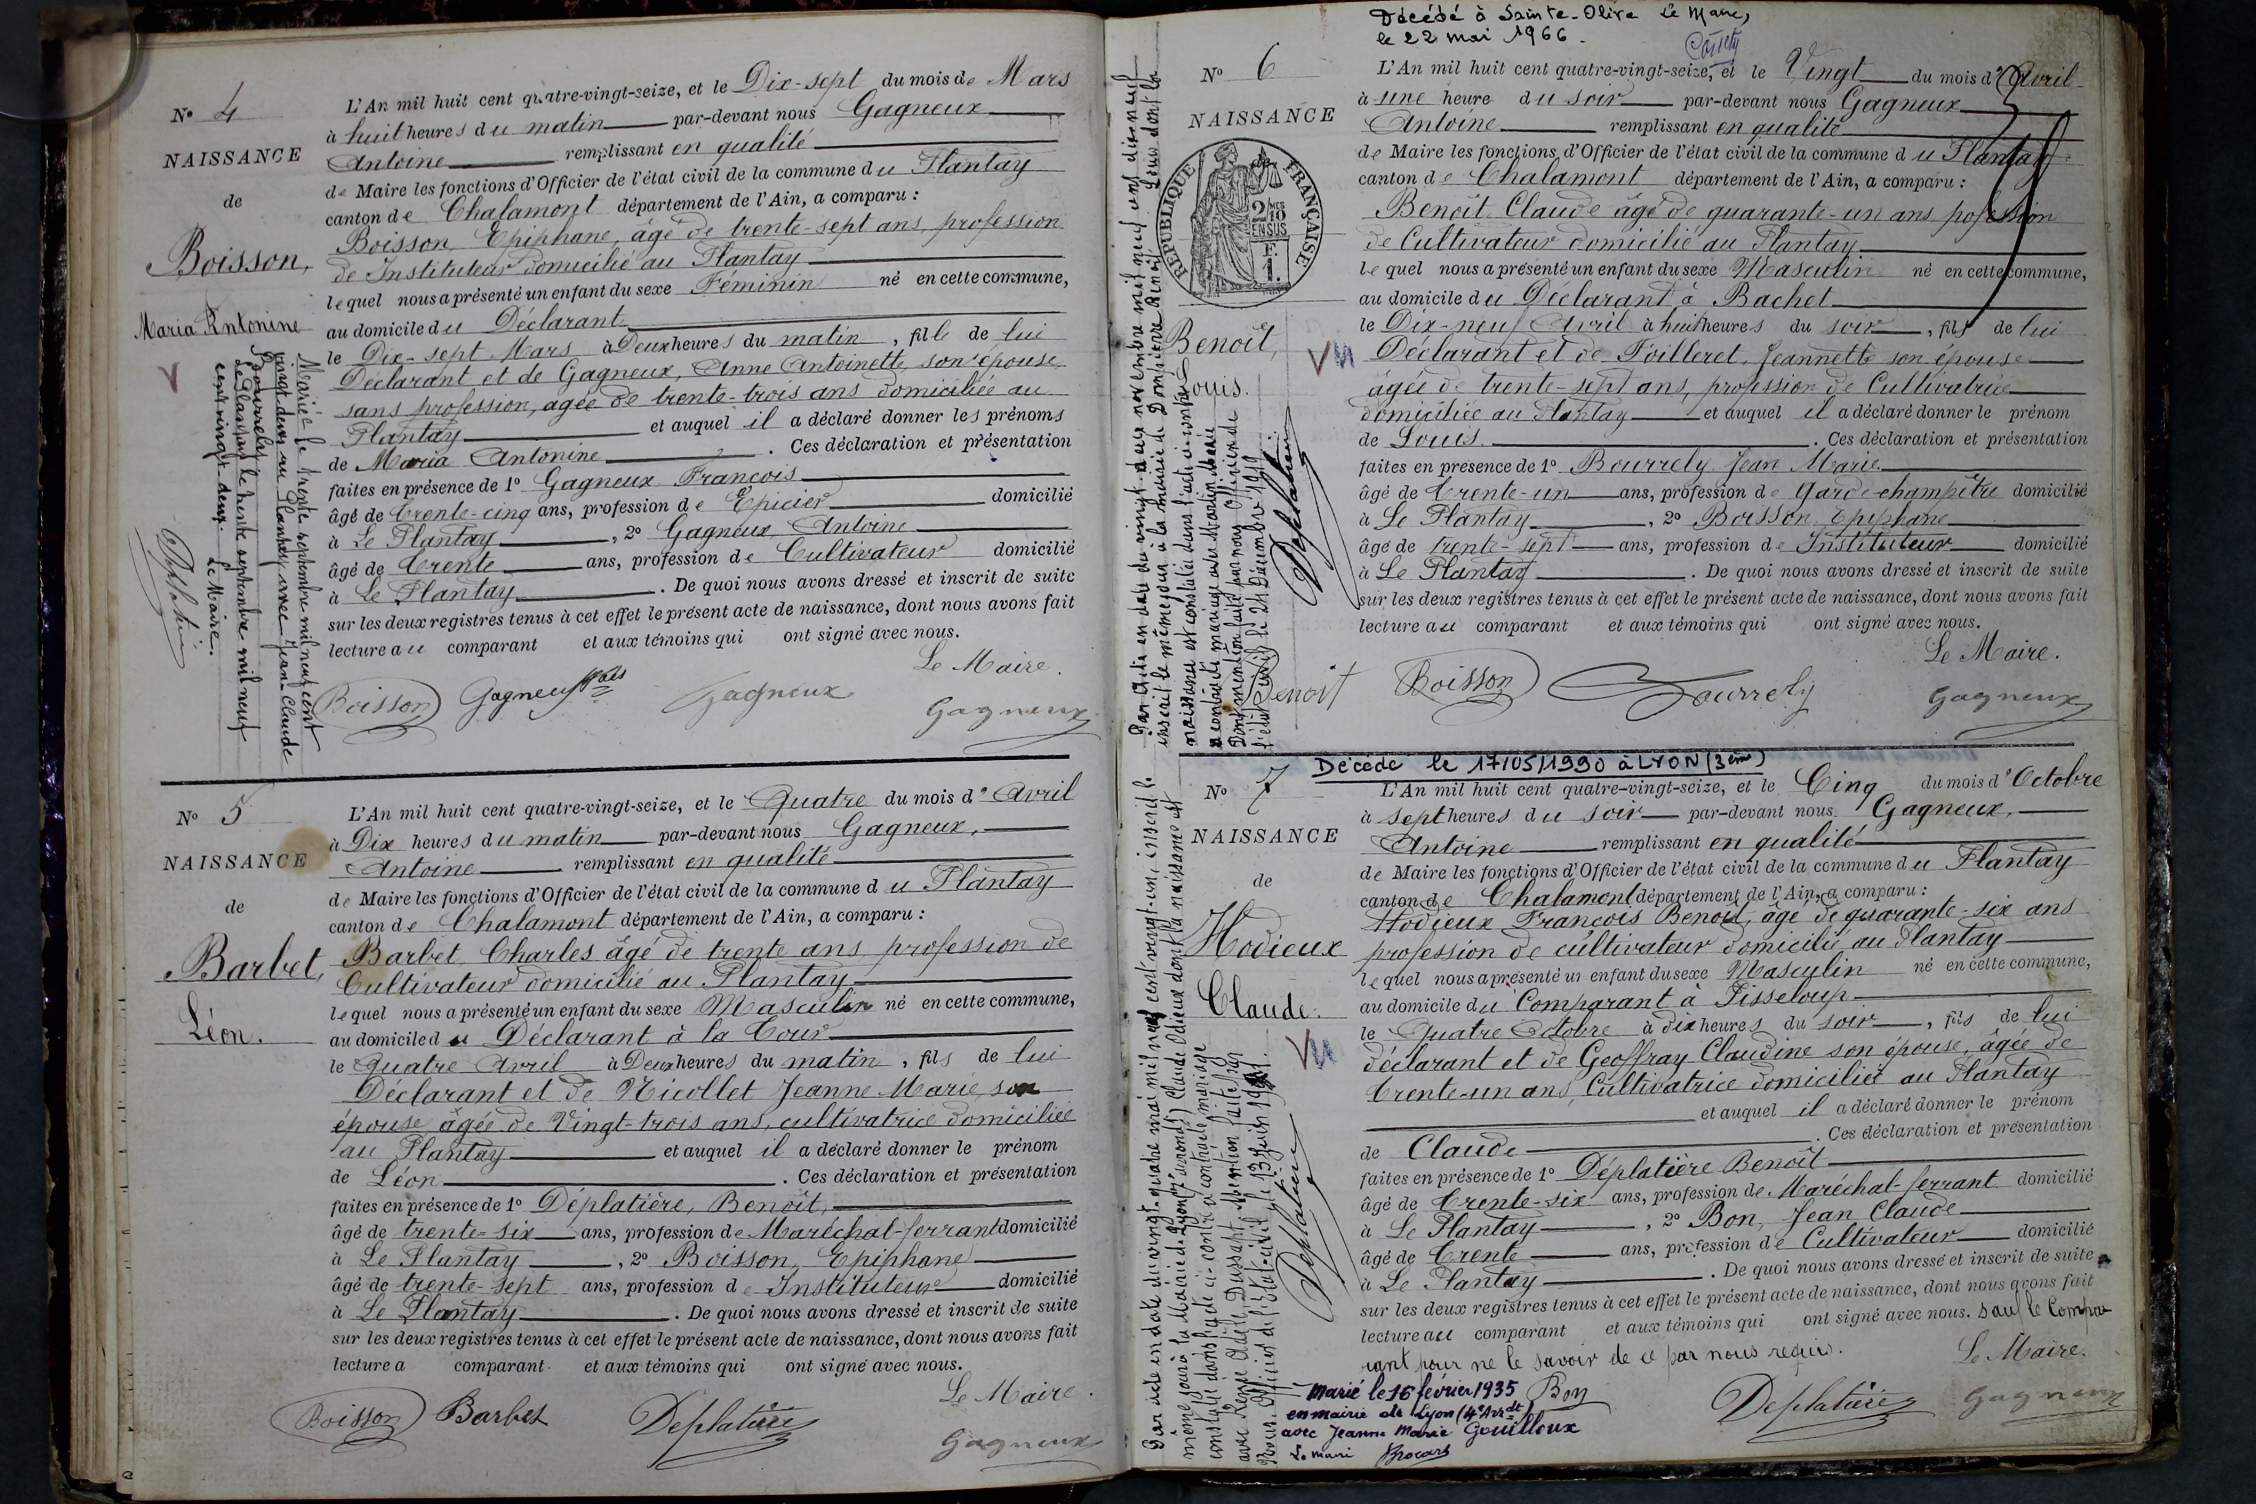 N° 4
NAISSANCE
de
Boisson,
Maria Antonine
L'An mil huit cent quatre-vingt-seize, et le Dix-sept du mois de Mars
à huit heures du matin par-devant nous Gagneux
Antoine remplissant en qualité
de Maire les fonctions d'Officier de l'état civil de la commune du Plantay
canton de Chalamont département de l'Ain, a comparu :
Boisson Epiphane, âgé de trente-sept ans, profession
de Instituteur domicilié au Plantay
lequel nous a présenté un enfant du sexe Féminin né en cette commune,
au domicile du Déclarant
le Dix-sept Mars à Deux heures du matin, fille de lui
Déclarant et de Gagneux, Anne Antoinette, son épouse,
sans profession, agée de trente-trois ans domiciliée au
Plantay et auquel il a déclaré donner les prénoms
de Maria Antonine . Ces déclaration et présentation
faites en présence de 1° Gagneux François
âgé de trente-cinq ans, profession de Epicier domicilié
à Le Plantay, 2° Gagneux, Antoine
âgé de trente ans, profession de Cultivateur domicilié
à Le Plantay . De quoi nous avons dressé et inscrit de suite
sur les deux registres tenus à cet effet le présent acte de naissance, dont nous avons fait
lecture au comparant et aux témoins qui ont signé avec nous.
Le Maire.
Boisson Gagneux Gagneux Gagneux
Marié le trente septembre mil neuf cent
vingt-deux au Plantay avec Jean-Claude
Le Plantay le trente septembre mil neuf
cent vingt-deux. Le Maire.
N° 5
NAISSANCE
de
Barbet,
Léon.
L'An mil huit cent quatre-vingt-seize, et le Quatre du mois d'Avril
à Dix heures du matin par-devant nous Gagneux,
Antoine remplissant en qualité
de Maire les fonctions d'Officier de l'état civil de la commune du Plantay
canton de Chalamont département de l'Ain, a comparu :
Barbet, Charles âgé de trente ans profession de
Cultivateur domicilié au Plantay
lequel nous a présenté un enfant du sexe Masculin né en cette commune,
au domicile du Déclarant à la Cour
le Quatre Avril à Deux heures du matin, fils de lui
Déclarant et de Nicollet Jeanne Marie, son
épouse âgée de Vingt-trois ans, cultivatrice domiciliée
au Plantay et auquel il a déclaré donner le prénom
de Léon . Ces déclaration et présentation
faites en présence de 1° Déplatière, Benoît,
âgé de trente-six ans, profession de Maréchal-ferrant domicilié
à Le Plantay, 2° Boisson, Epiphane
âgé de trente-sept ans, profession de Instituteur domicilié
à Le Plantay . De quoi nous avons dressé et inscrit de suite
sur les deux registres tenus à cet effet le présent acte de naissance, dont nous avons fait
lecture a comparant et aux témoins qui ont signé avec nous.
Le Maire.
Boisson Barbet Deplatière Gagneux
Décédé à Sainte-Olive Le Maire,
le 22 mai 1966.
N° 6
NAISSANCE
RÉPUBLIQUE FRANÇAISE
2/10 EN SUS
F. 1.
Benoit,
Louis.
L'An mil huit cent quatre-vingt-seize, et le Vingt du mois d'Avril
à une heure du soir par-devant nous Gagneux
Antoine remplissant en qualité
de Maire les fonctions d'Officier de l'état civil de la commune du Plantay
canton de Chalamont département de l'Ain, a comparu :
Benoit Claude âgé de quarante-un ans pofession
de Cultivateur domicilié au Plantay
lequel nous a présenté un enfant du sexe Masculin né en cette commune,
au domicile du Déclarant à Bachet
le Dix-neuf Avril à huit heures du soir, fils de lui
Déclarant et de Foilleret, Jeannette son épouse
âgée de trente-sept ans, profession de Cultivatrice
domiciliée au Plantay et auquel il a déclaré donner le prénom
de Louis . Ces déclaration et présentation
faites en présence de 1° Bourrely Jean Marie
âgé de trente-un ans, profession de garde-champêtre domicilié
à Le Plantay, 2° Boisson Epiphane
âgé de trente-sept ans, profession de Instituteur domicilié
à Le Plantay . De quoi nous avons dressé et inscrit de suite
sur les deux registres tenus à cet effet le présent acte de naissance, dont nous avons fait
lecture au comparant et aux témoins qui ont signé avec nous.
Le Maire.
Benoit Boisson Bourrely Gagneux
Par acte en date du vingt-deux novembre mil neuf cent dix neuf
inscrit le même jour à la mairie de Benoit Louis dont la
naissance est constatée dans l'acte ci-contre
a contracté mariage avec
Dont mention faite par nous Officier de
l'état civil le 24 Décembre 1919
Deplatière
Décédé le 17/05/1990 à LYON (3ème)
N° 7
NAISSANCE
de
Hodieux
Claude.
L'An mil huit cent quatre-vingt-seize, et le Cinq du mois d'Octobre
à sept heures du soir par-devant nous Gagneux,
Antoine remplissant en qualité
de Maire les fonctions d'Officier de l'état civil de la commune du Plantay
canton de Chalamont département de l'Ain, a comparu :
Hodieux François Benoit, âgé de quarante-six ans
profession de cultivateur domicilié au Plantay
lequel nous a présenté un enfant du sexe Masculin né en cette commune,
au domicile du Comparant à Pisseloup
le Quatre Octobre à dix heures du soir, fils de lui
déclarant et de Geoffray Claudine son épouse, âgée de
trente-un ans, Cultivatrice domiciliée au Plantay
et auquel il a déclaré donner le prénom
de Claude . Ces déclaration et présentation
faites en présence de 1° Déplatière Benoît
âgé de trente-six ans, profession de Maréchal-ferrant domicilié
à Le Plantay, 2° Bon, Jean Claude
âgé de trente ans, profession de Cultivateur domicilié
à Le Plantay . De quoi nous avons dressé et inscrit de suite
sur les deux registres tenus à cet effet le présent acte de naissance, dont nous avons fait
lecture au comparant et aux témoins qui ont signé avec nous. sauf le Compa
rant pour ne le savoir de ce par nous requis.
Le Maire.
Bon Deplatière Gagneux
Par acte en date du vingt-quatre mai mil neuf cent vingt-un, inscrit le
même jour à la Mairie de Lyon Claude Odieux dont la naissance est
constatée dans l'acte ci-contre a contracté mariage
avec Mention faite par
Nous Officier de l'Etat-civil le 13 Juin
Deplatière
Marié le 16 février 1935
en mairie de Lyon (4e Arrdt)
avec Jeanne Marie Gouilloux
Le maire